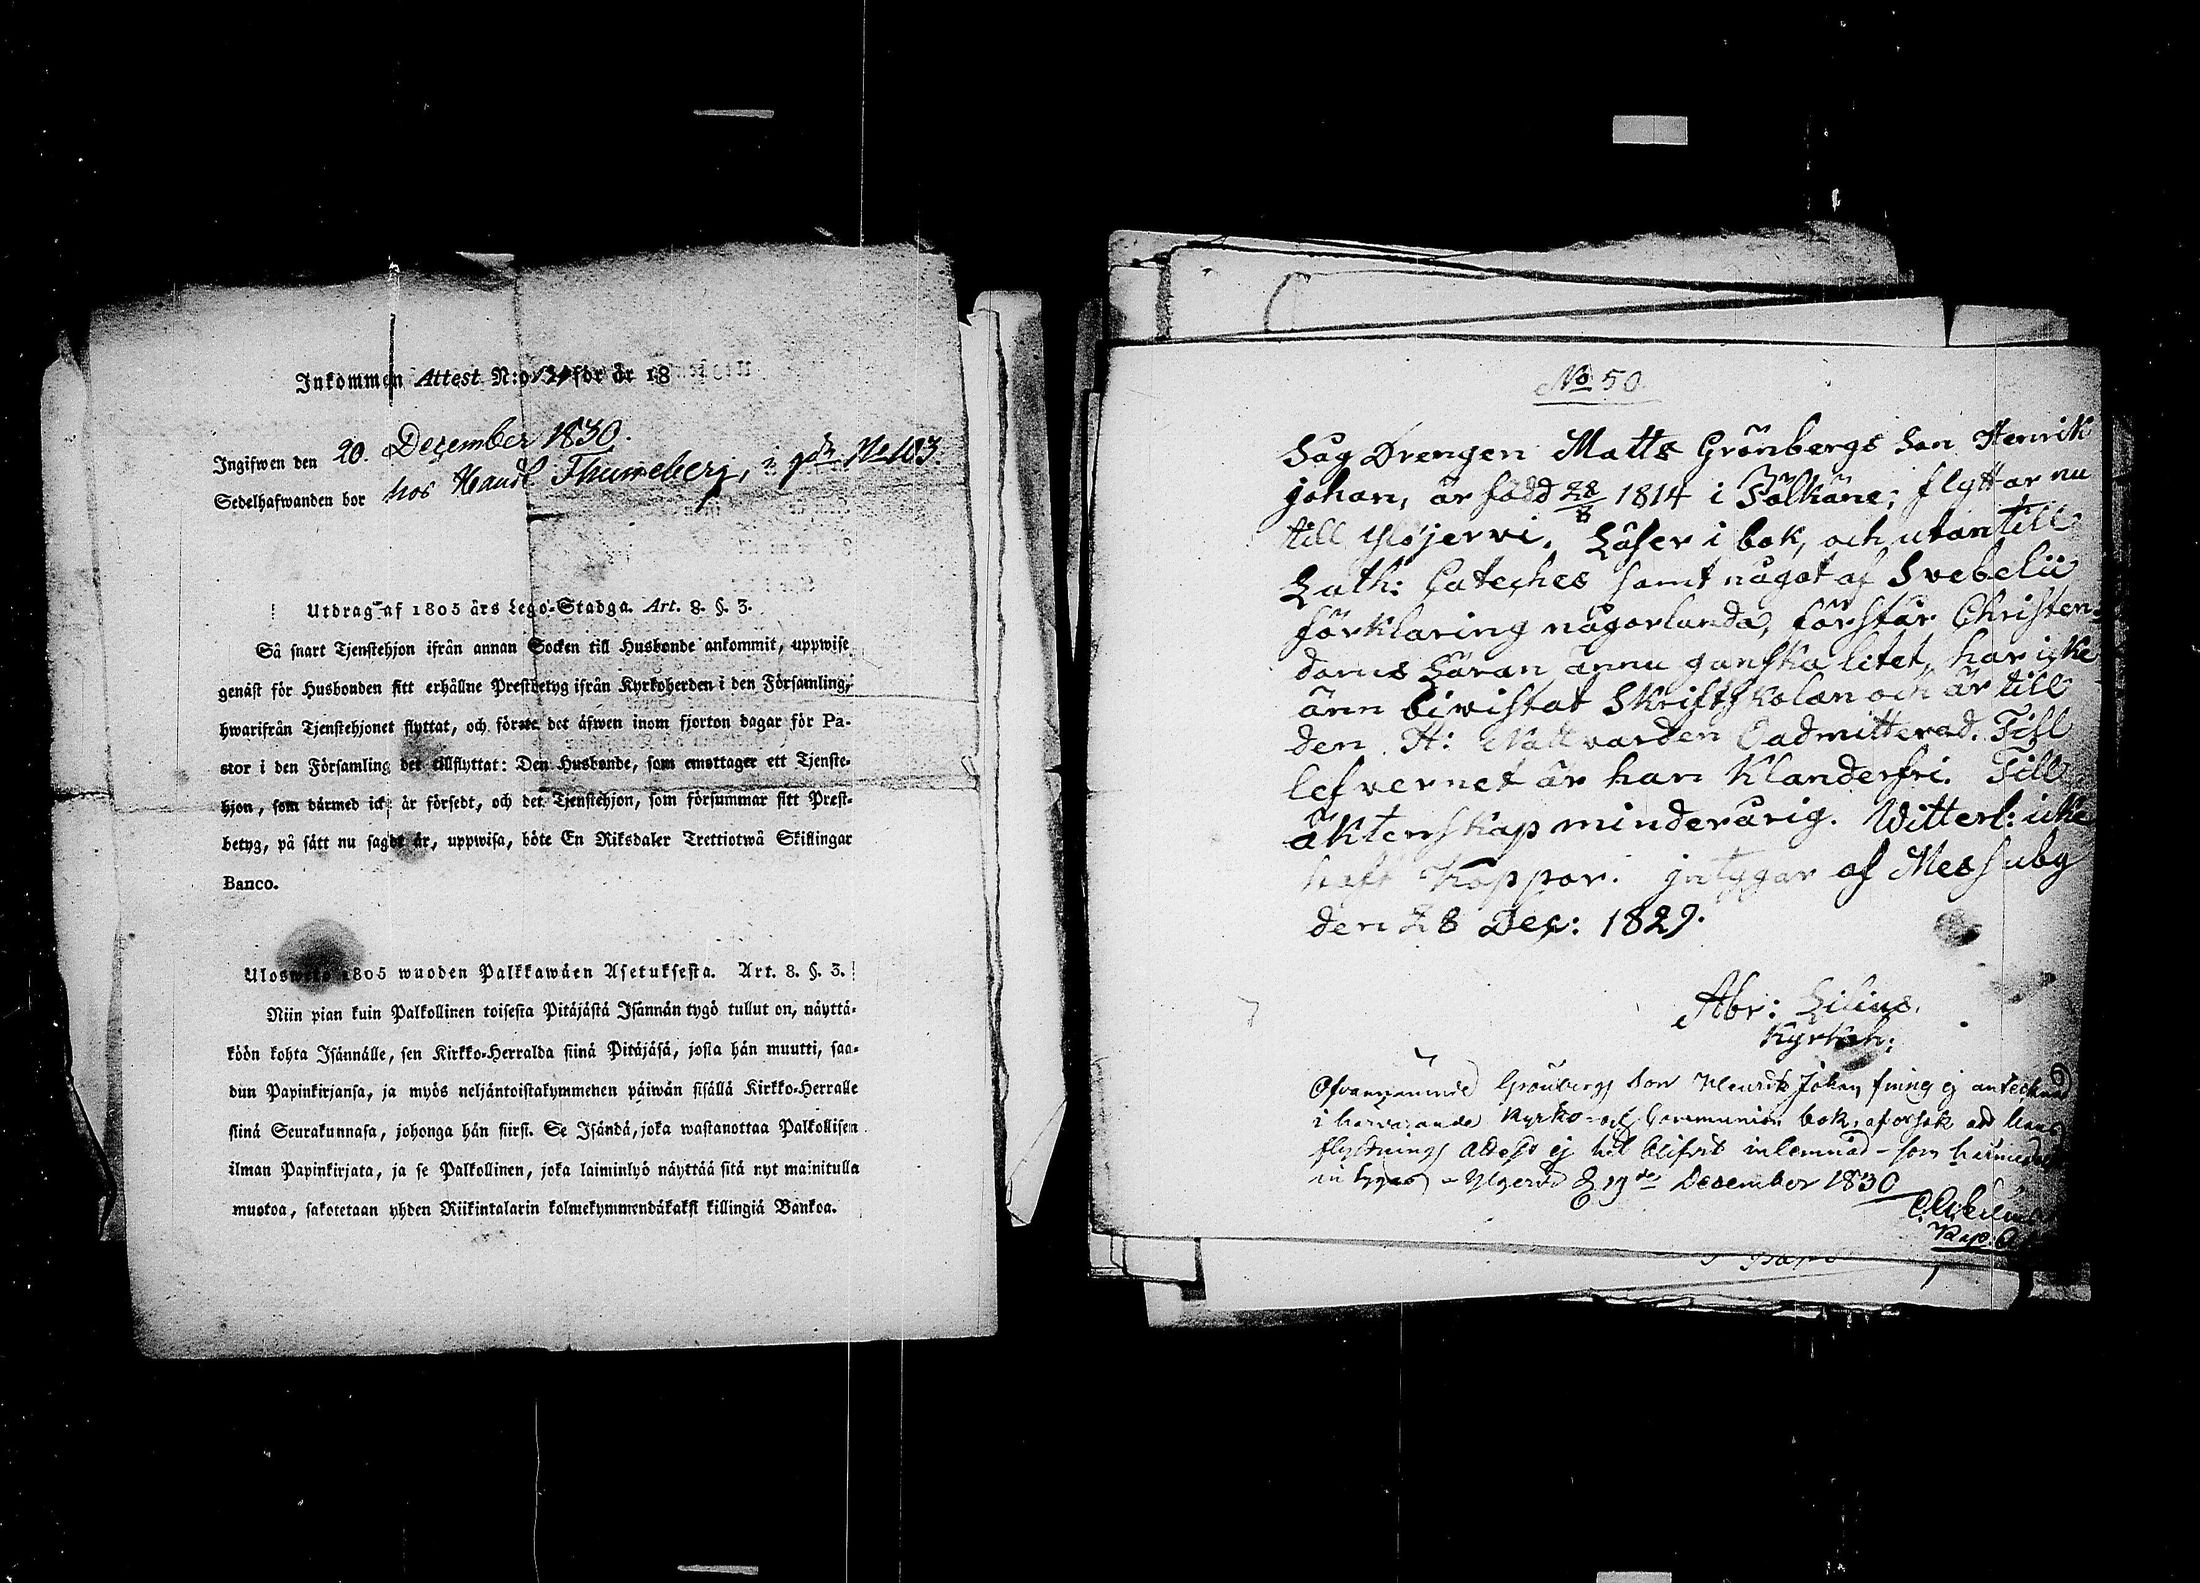 Inkommen Attest N:o för år 18
Ingifwen den 20. December 1830.
Sedelhafwanden bor hos Handl. Thuneberg, i gdn No 103
Utdrag af 1805 års Lego-Stadga. Art. 8. §. 3.
Så snart Tjenstehjon ifrån annan Socken till Husbonde ankommit, uppwise
genäst för Husbonden sitt erhållne Prestbetyg ifrån Kyrkoherden i den Församling,
hwarifrån Tjenstehjonet flyttat, och förete det äfwen inom fjorton dagar för Pa-
stor i den Församling det tillflyttat: Den Husbonde, som emottager ett Tjenste-
hjon, som därmed ick är försedt, och det Tjenstehjon, som försummar sitt Prest-
betyg, på sätt nu sagdt är, uppwisa, böte En Riksdaler Trettiotwå Skillingar
Banco.
Uloswето 1805 wuoden Palkkawäen Asetuksesta. Art. 8. §. 3.
Niin pian kuin Palkollinen toisesta Pitäjästä Isännän tygö tullut on, näyttä-
köön kohta Isännälle, sen Kirkko-Herralda siinä Pitäjäsä, josta hän muutti, saa-
dun Papinkirjansa, ja myös neljäntoistakymmenen päiwän sisällä Kirkko-Herralle
siinä Seurakunnasa, johonga hän siirst. Se Isändä, joka wastanottaa Palkollisen
ilman Papinkirjata, ja se Palkollinen, joka laiminlyö näyttää sitä nyt mainitulla
muotoa, sakotetaan yhden Riikintalarin kolmekymmendäkaksi killingiä Bankoa.
No 50
Sag Drengen Matts Grönbergs Son Henrik
Johan, är född 28/8 1814 i Pälkäne; flyttar nu
till Ylöjervi. Läser i bok, och utantill
Luth: Cateches samt något af Svebelii
förklaring någorlunda, förstår Christen-
doms Läran ännu ganska litet, har icke
änn bivistat Skriftskolan och är till
den H: Nattvarden Oadmitterad. Till
lefvernet är han klanderfri. Till
äktenskap minderårig. Witterl: icke
haft Koppor. intygar af Messuby
den 28 Dec: 1829.
Abr: Lilius.
Kyrkoh:
Ofvannämnde Grönbergs Son Henrik Johan finns ej antecknad
i härvarande Kyrko- och Communion bok, af orsak att hans
flyttnings attest ej hit blifvit inlemnad - som härmedelst
intygas - Ylöjervi d. 19de December 1830